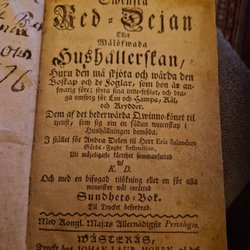 Swenska
Red-Dejan
Eller
Wälöfwade
Hushållerskan,
Huru den må skjöta och wårda den
Boskap och de Foglar, som hon är an-
swarig före: sköta sina innesyslor, och dra-
ga omsorg för Lin och Hampa, Kål,
och Krydder.
Dem af det hederwärda Qwinno-könet til
tjenst, som sig om en sådan wetenskap i
Hushållningen bemöda.
I stället för Andra Delen til Herr Eric Salanders
Gårds-Fogde Instruction.
Ut möjeligaste korthet sammanfattad
af
K. D.
Och med en bifogad tilökning eller en för alla
menniskor wäl inrättad
Sundhets-Bok.
Til Trycket befordrad.
Med Kongl. Maj:ts Allernådigste Privilegio.
WÄSTERÅS,
Tryckt hos JOHAN LAUR. HORRN